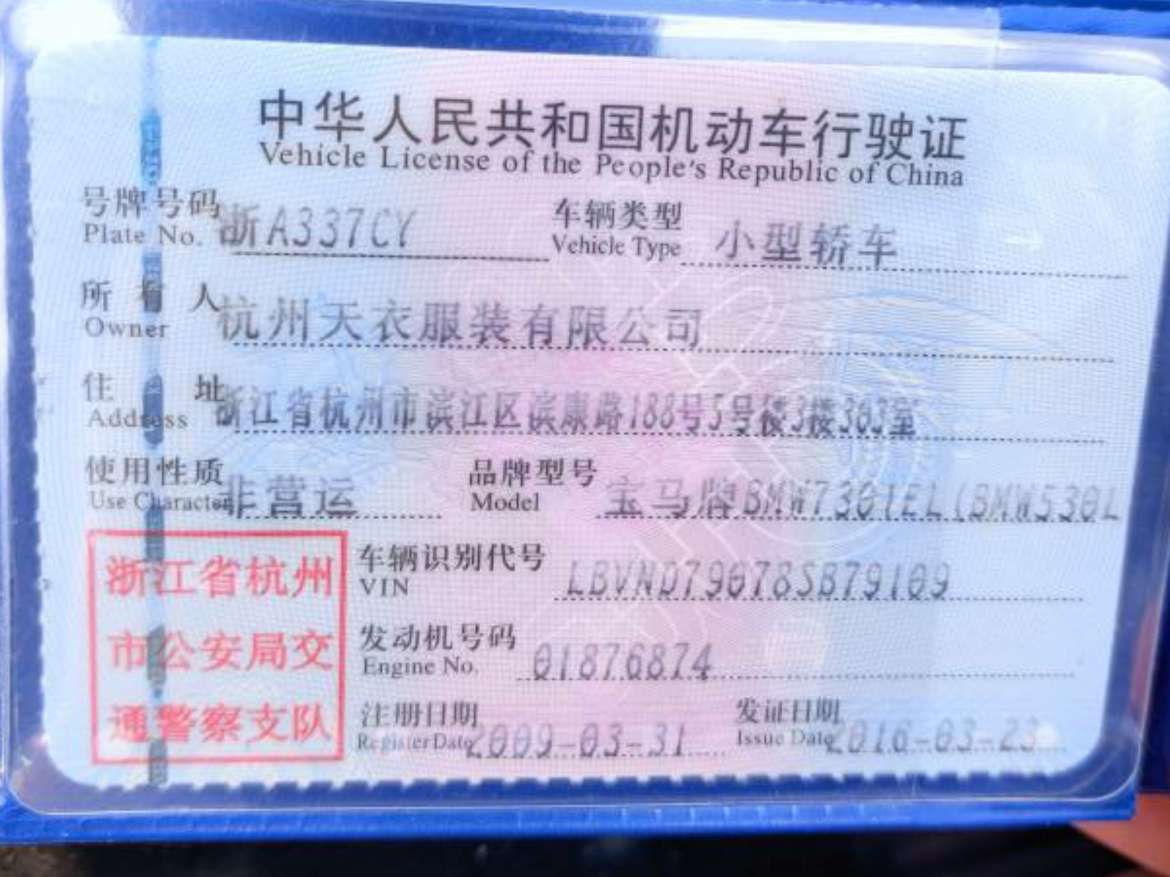 中华人民共和国机动车行驶证
Vehicle License of the People's Republic of China
号牌号码 浙A337CY 车辆类型 小型轿车
Plate No. Vehicle Type
所有人 杭州天衣服装有限公司
Owner
住址 浙江省杭州市滨江区滨康路188号5号楼3楼303室
Address
使用性质 非营运 品牌型号 宝马牌BMW7301EL(BMW530L
Use Character Model
浙江省杭州
市公安局交
通警察支队
车辆识别代号 LBVND79078SB79109
VIN
发动机号码 01876874
Engine No.
注册日期 2009-03-31 发证日期 2016-03-23
Register Date Issue Date